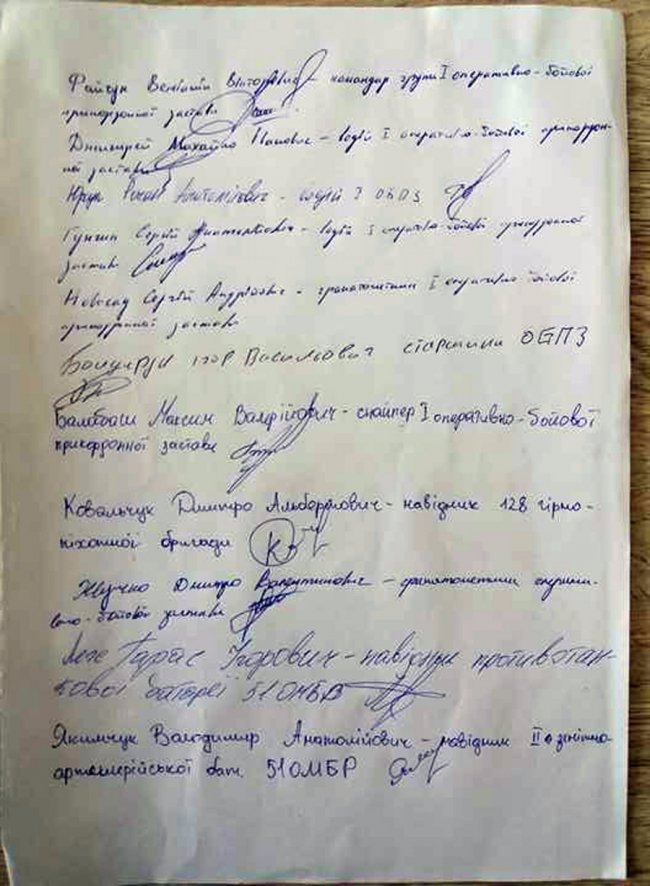 Вікторович - командир групи І оперативно-бойової
прикордонної застави
Михайло - водій І оперативно-бойової прикордон-
ної застави
Анатолійович - водій І ОБПЗ
Сергій - водій І оперативно-бойової прикордонної
застави
Новосад Сергій Андрійович - гранатометник І оперативно-бойової
прикордонної застави
Бондарук Ігор Васильович старшина ОБПЗ
Максим Валерійович - снайпер І оперативно-бойової
прикордонної застави
Ковальчук Дмитро Альбертович - навідник 128 гірно-
піхотної бригади
Жучко Дмитро Валентинович - гранатометник операти-
вно-бойової застави
Тарас Ігорович - навідник протитан-
кової батареї 51 ОМБР
Якимчук Володимир Анатолійович - навідник ІІ зенітно
артилерійської бат. 51 ОМБР